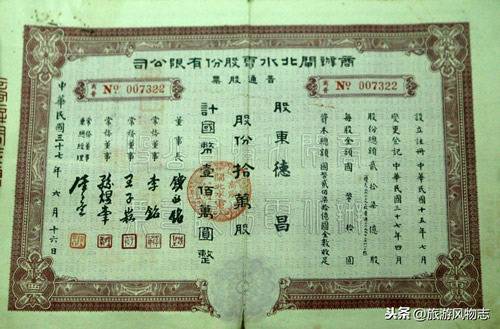 商辦閘北水電股份有限公司
普通股票
No 007322
No 007322
設立註冊 中華民國十五年七月
變更登記 中華民國三十七年四月
股份總額 貳拾柒億股
每股金額 國幣拾圓
資本總額 國幣貳佰柒拾億圓全數收足
股東德昌
股份拾萬股
計國幣壹佰萬圓整
董事長
常務董事 李銘
常務董事
常務董事
常務董事兼總經理
中華民國三十七年六月十六日
头条 @旅游风物志